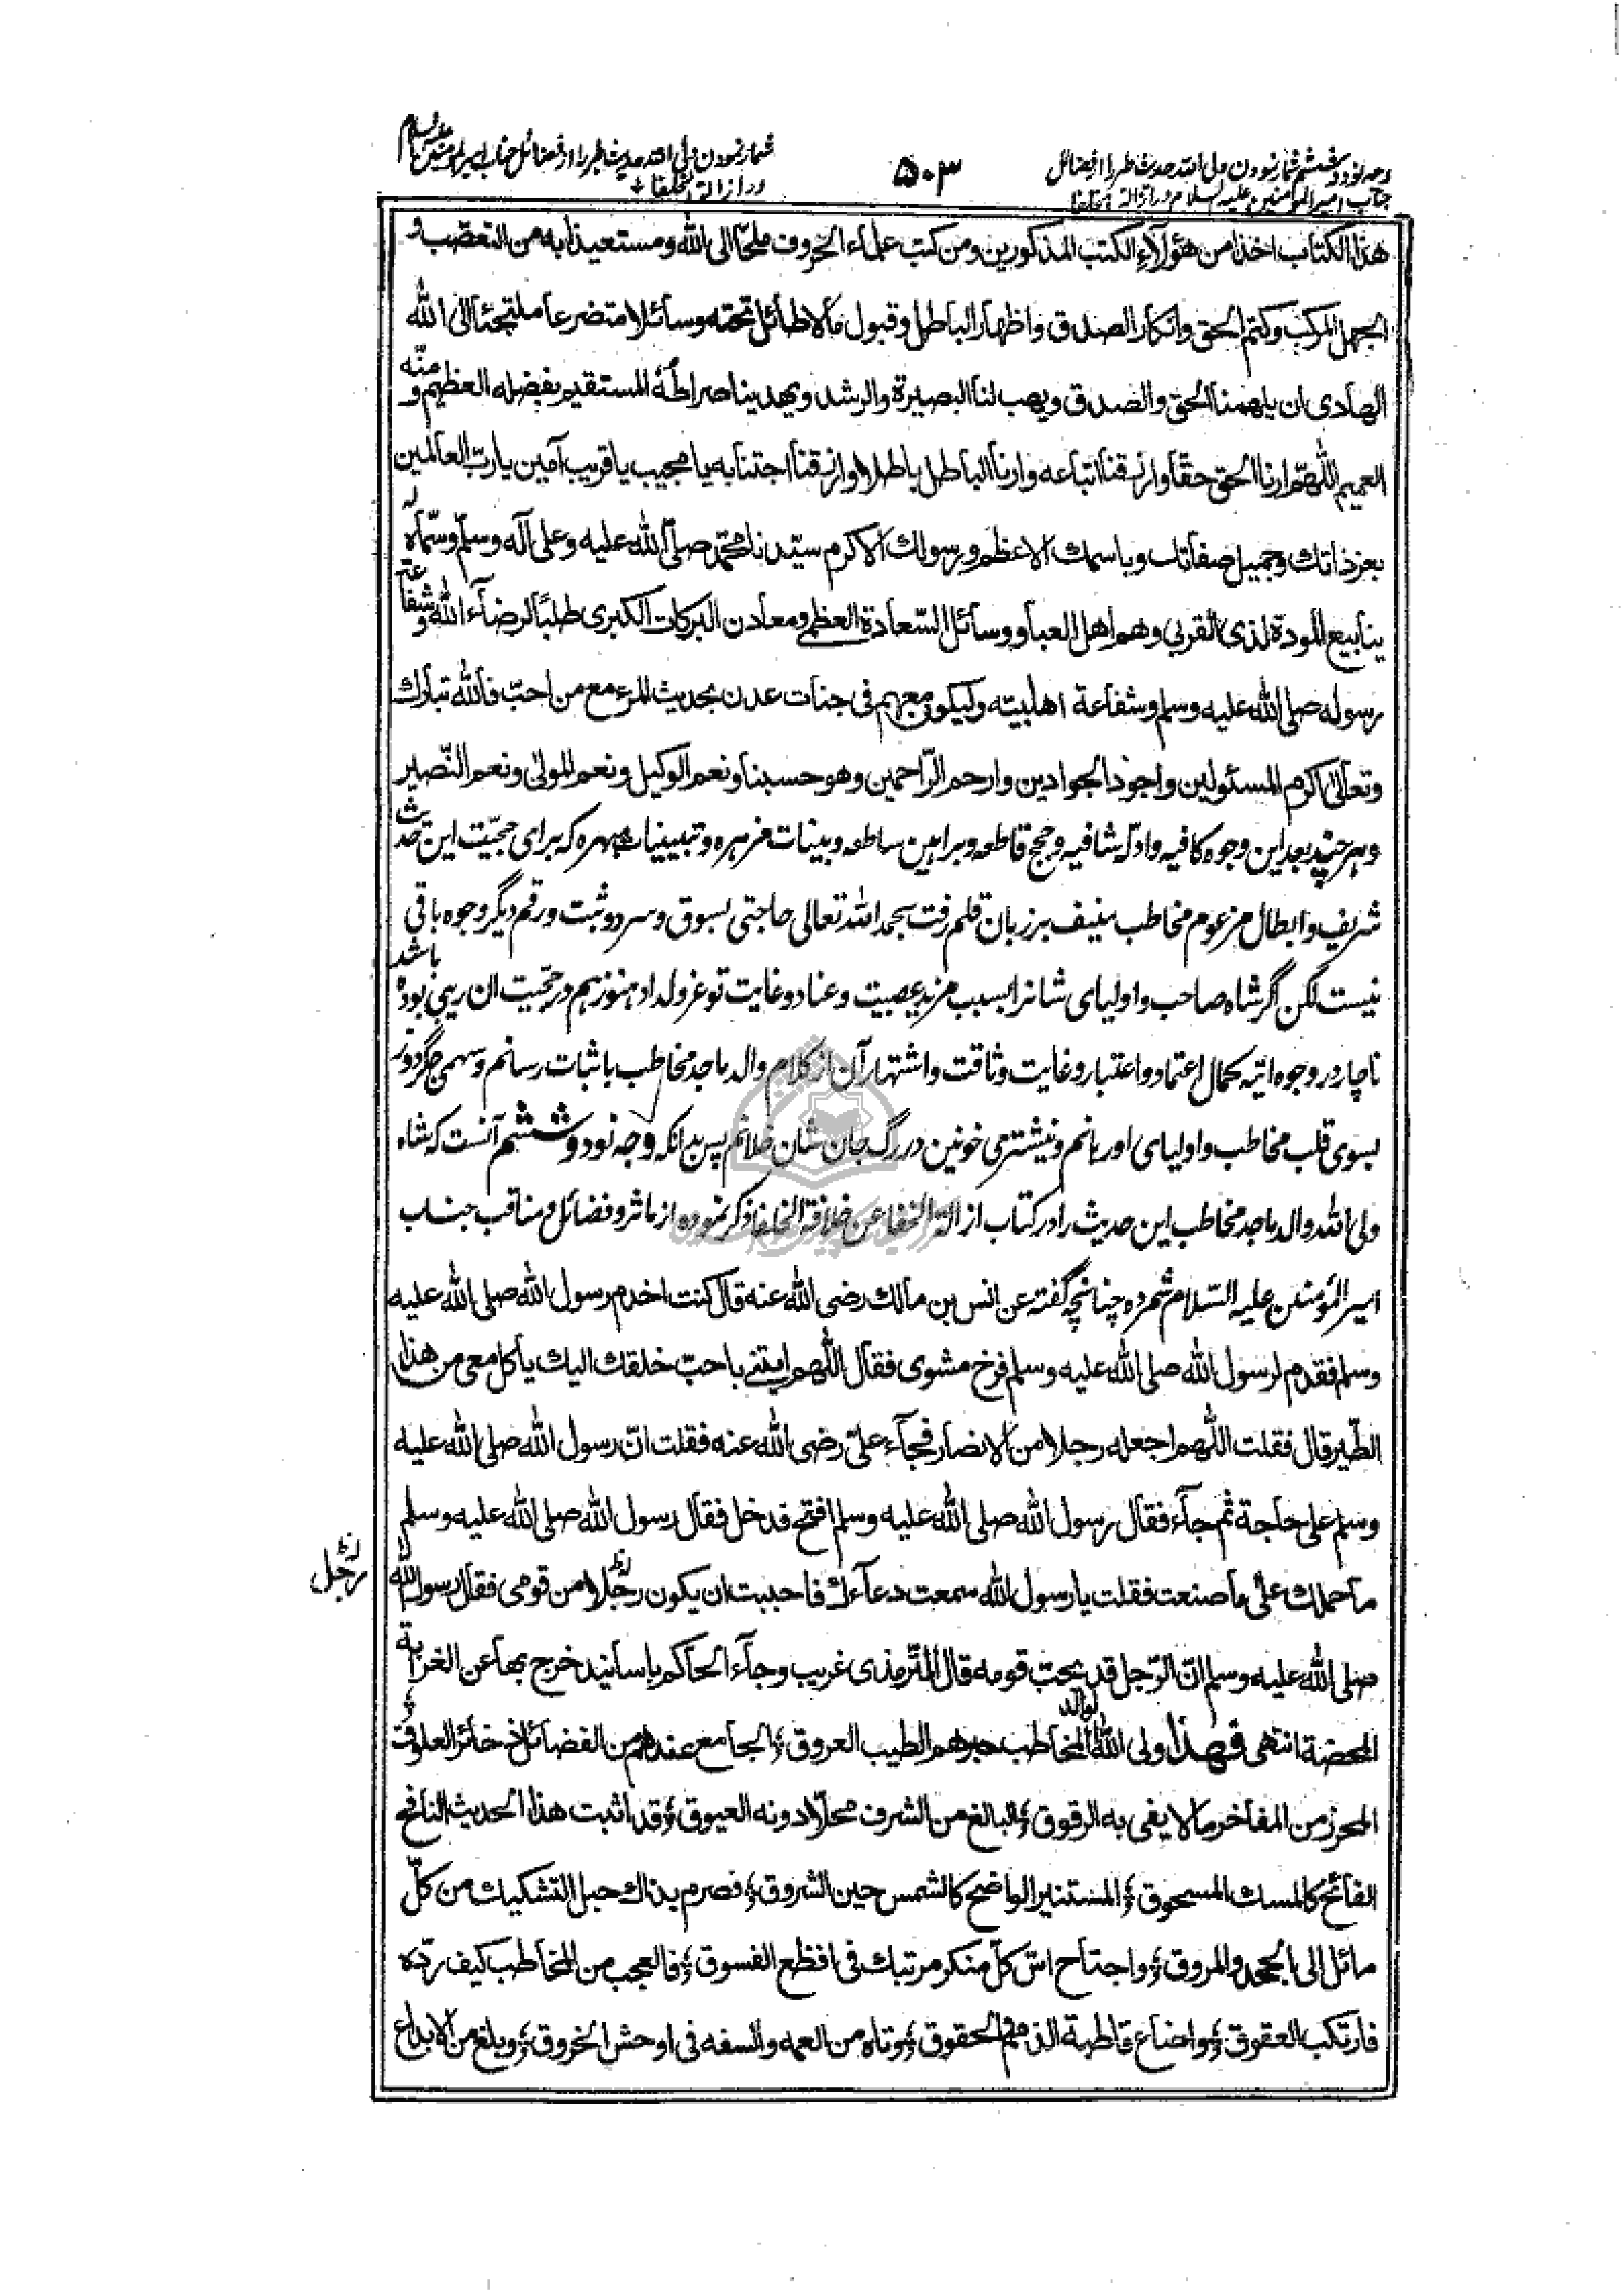 وجه نود و ششم شمار نمودن ولی الله حدیث طیر را از فضائل
جناب امیر المؤمنین علیه السلام در ازالة الخفا
۵۰۳
شمار نمودن ولی الله حدیث طیر را از فضائل جناب امیر المؤمنین علیه السلام
در ازالة الخفا
هذا الكتاب اخذا من هؤلاء الكتب المذكورين ومن كتب علماء الحروف ملحّا الى الله ومستعيذا به من التعصّب و
الجهل المركب وكتم الحق وانكار الصدق واظهار الباطل وقبول ما لا طائل تحته وسائلا متضرعا ملتجئا الى الله
الهادى ان يلهمنا الحق والصدق ويهب لنا البصيرة والرشد ويهدينا صراطه المستقيم بفضله العظيم و منّه
العميم اللّهمّ ارنا الحق حقّا وارزقنا اتباعه وارنا الباطل باطلا وارزقنا اجتنابه يا مجيب يا قريب آمين يا ربّ العالمين
بعز ذاتك وجميل صفاتك وباسمك الاعظم وبرسولك الاكرم سيّدنا محمّد صلى الله عليه وعلى آله وسلّم وسمّاه
ينابيع المودة لذى القربى وهم اهل العبا ووسائل السّعادة العظمى ومعادن البركات الكبرى طلبًا لرضاء الله و شفاعة
رسوله صلى الله عليه وسلم وشفاعة اهلبيته وليكون معهم فى جنات عدن بحديث المرء مع من احبّ فالله تبارك
وتعالى اكرم المسئولين واجود الجوادين وارحم الرّاحمين وهو حسبنا ونعم الوكيل ونعم المولى ونعم النّصير
و هرچند بعد این وجوه کافیه و ادلّه شافیه و حجج قاطعه و براهین ساطعه و بینات مزهره و تبیینات مبهره که برای حجیّت این حدیث
شریف و ابطال مزعوم مخاطب منیف بر زبان قلم رفت بحمد الله تعالی حاجتی بسوق و سرد و ثبت و رقم دیگر وجوه باقی
نیست لکن اگر شاه صاحب و اولیای شانرا بسبب مزید عصبیت و عناد و غایت توغر و لداد هنوز هم در حجّیت ان ریبی بوده باشد
ناچار در وجوه اتیه کمال اعتماد و اعتبار و غایت وثاقت و اشتهار آن از کلام والد ماجد مخاطب باثبات رسانم و سهمی جگردوز
بسوی قلب مخاطب و اولیای او رانم و نیشتری خونین در رگ جان شان خلانم پس بدانکه وجه نود و ششم آنست که شاه
ولی الله والد ماجد مخاطب این حدیث را در کتاب ازالة الخفا عن خلافة الخلفا ذکر نموده از ماثر و فضائل و مناقب جناب
امیر المؤمنین علیه السّلام شمرده چنانچه گفته عن انس بن مالك رضى الله عنه قال كنت اخدم رسول الله صلى الله عليه
وسلم فقدم لرسول الله صلى الله عليه وسلم فرخ مشوى فقال اللّهم ايتنى باحبّ خلقك اليك ياكل معى من هذا
الطّير قال فقلت اللّهم اجعله رجلا من الانصار فجاء علىّ رضى الله عنه فقلت انّ رسول الله صلى الله عليه
وسلم على حاجة ثم جاء فقال رسول الله صلى الله عليه وسلم افتح فدخل فقال رسول الله صلى الله عليه وسلم
ما حملك على ما صنعت فقلت يا رسول الله سمعت دعاءك فاحببت ان يكون رجلا من قومى فقال رسول الله
رجل
صلى الله عليه وسلم انّ الرّجل قد يحبّ قومه قال التّرمذى غريب وجاء الحاكم باسانيد خرج بها عن الغرابة
المحضة انتهى فهذا ولى الله والد المخاطب حبرهم الطيب العروق، الجامع عندهم من الفضائل ذخائر العلوق،
المحرز من المفاخر ما لا يفى به الرقوق، البالغ من الشرف محلّا دونه العيوق، قد اثبت هذا الحديث النافح
الفائح كالمسك المسحوق، المستنير الواضح كالشمس حين الشروق، فصرم بذاك حبل التشكيك من كلّ
مائل الى الجحد والمروق، واجتاح اسّ كلّ منكر مرتبك فى افظع الفسوق، فالعجب من المخاطب كيف ردّه
فارتكب العقوق، واضاع قاطبة الذمم والحقوق، وتاه من العمه والسفه فى اوحش الخروق، وبلغ من الابداع